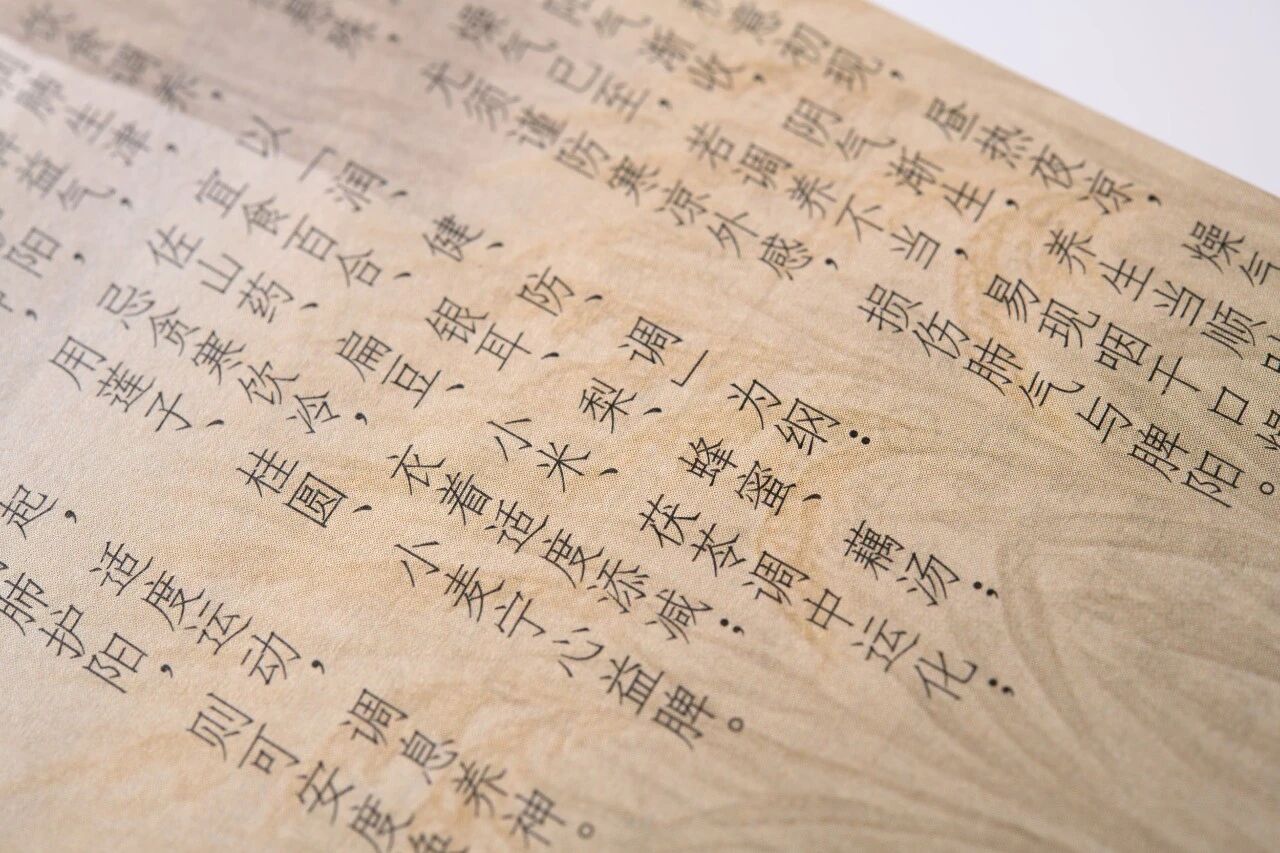 意初现，昼热夜凉，燥气
气渐收，阴气渐生，养生当顺
燥气已至，若调养不当，易现咽干口
尤须谨防寒凉外感，损伤肺气与脾阳。
以「润、健、防、调」为纲：
宜食百合、银耳、梨、蜂蜜、藕汤；
生津，佐山药、扁豆、小米、茯苓调中运化；
益气，忌贪寒饮冷，衣着适度添减；
阳，用莲子、桂圆、小麦宁心益脾。
起，适度运动，调息养神。
肺护阳，则可安度